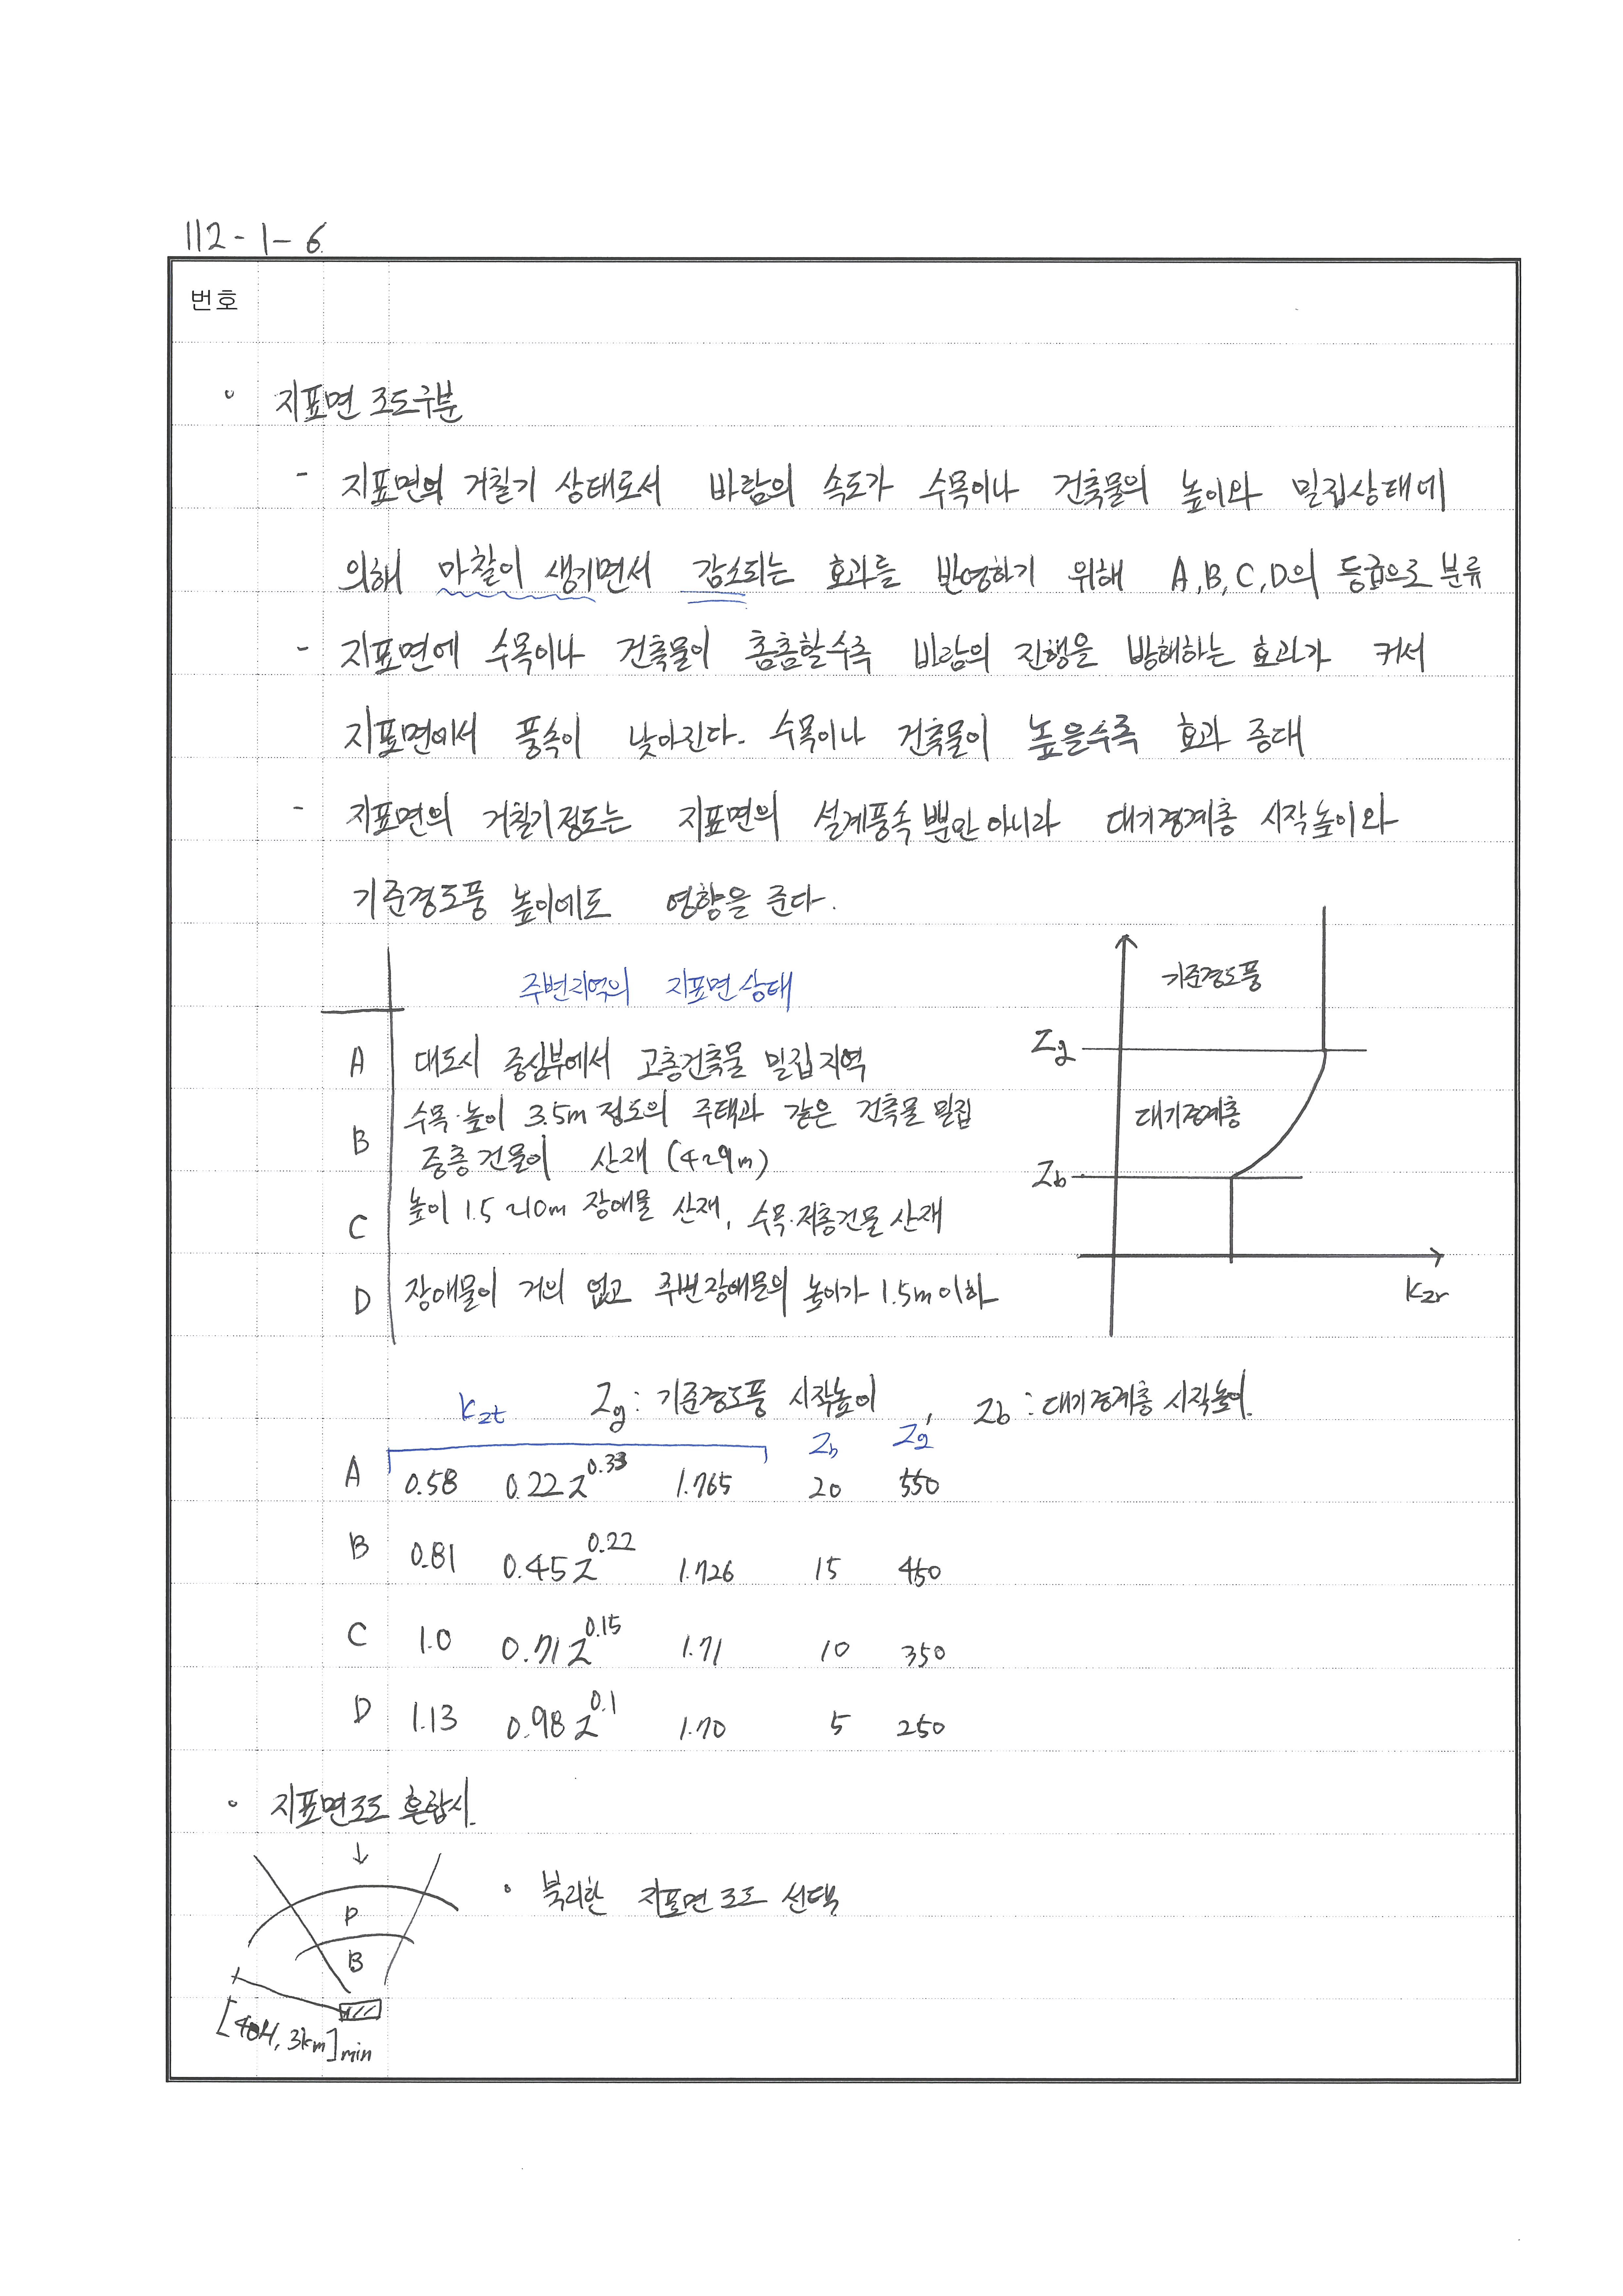 112-1-6
번호
° 지표면 조도구분
- 지표면의 거칠기 상태로서 바람의 속도가 수목이나 건축물의 높이와 밀집상태에
의해 마찰이 생기면서 감소되는 효과를 반영하기 위해 A,B,C,D의 등급으로 분류
- 지표면에 수목이나 건축물이 촘촘할수록 바람의 진행을 방해하는 효과가 커서
지표면에서 풍속이 낮아진다. 수목이나 건축물이 높을수록 효과 증대
- 지표면의 거칠기정도는 지표면의 설계풍속뿐만아니라 대기경계층 시작높이와
기준경도풍 높이에도 영향을 준다.
주변지역의 지표면상태
A 대도시 중심부에서 고층건축물 밀집지역
B 수목·높이 3.5m 정도의 주택과 같은 건축물 밀집
중층건물이 산재 (4~9m)
C 높이 1.5~10m 장애물 산재, 수목·저층건물 산재
D 장애물이 거의 없고 주변장애물의 높이가 1.5m이하
기준경도풍
Zg
대기경계층
Zb
Kzr
Zg : 기준경도풍 시작높이, Zb : 대기경계층 시작높이.
Kzt Zb Zg
A 0.58 0.22Z^0.33 1.765 20 550
B 0.81 0.45Z^0.22 1.726 15 450
C 1.0 0.71Z^0.15 1.71 10 350
D 1.13 0.98Z^0.1 1.70 5 250
° 지표면조도 혼합시.
↓
D
B
[40H, 3km]min
° 불리한 지표면조도 선택